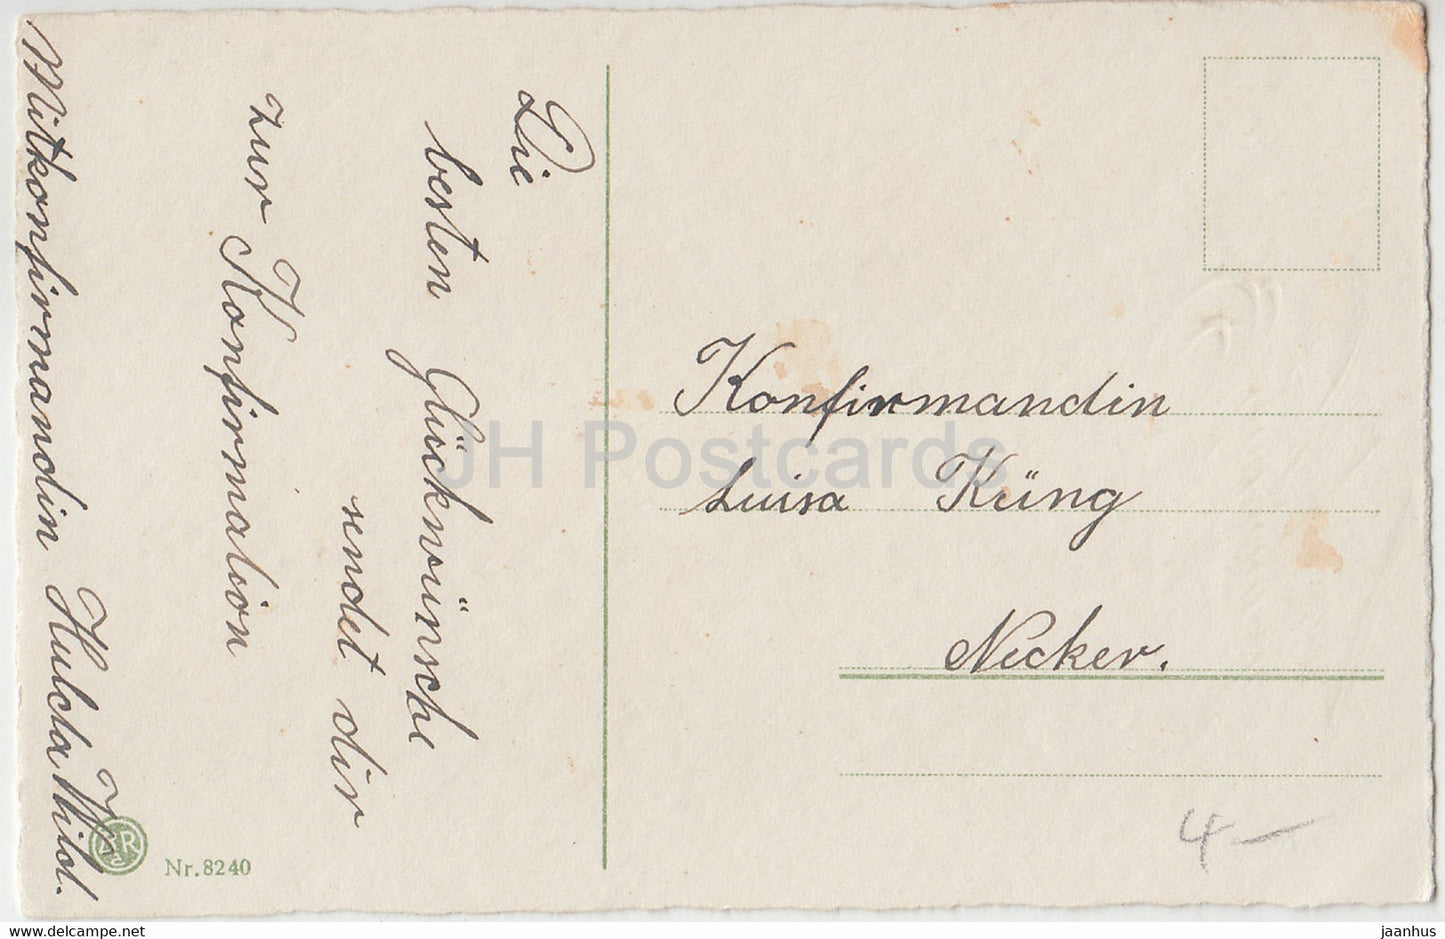 Die
besten Glückwünsche
sendet dir
zur Konfirmation
Mitkonfirmandin Hulda Wild.
Konfirmandin
Luisa Küng
Necker.
4-
Nr. 8240
JH Postcards
www.delcampe.net
jaanhus